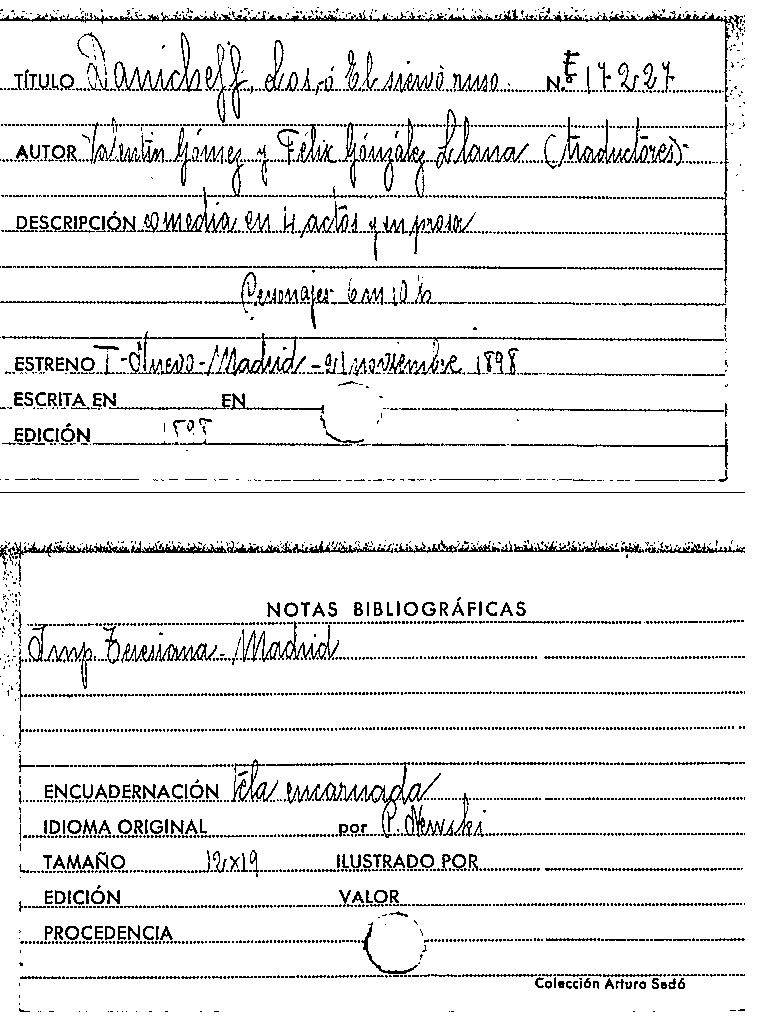 TÍTULO Danicheff, Los, ó El siervo ruso. N.º E 17-227
AUTOR Valentín Gómez y Félix González Llana (traductores)-
DESCRIPCIÓN comedia en 4 actos y en prosa
Personajes- 6 m 10 h
ESTRENO T-Nuevo-Madrid- noviembre 1898
ESCRITA EN EN
EDICIÓN 1898
NOTAS BIBLIOGRÁFICAS
Imp. Teresiana-Madrid
ENCUADERNACIÓN tela encarnada
IDIOMA ORIGINAL por P. Newski
TAMAÑO 12x19 ILUSTRADO POR
EDICIÓN VALOR
PROCEDENCIA
Colección Arturo Sedó